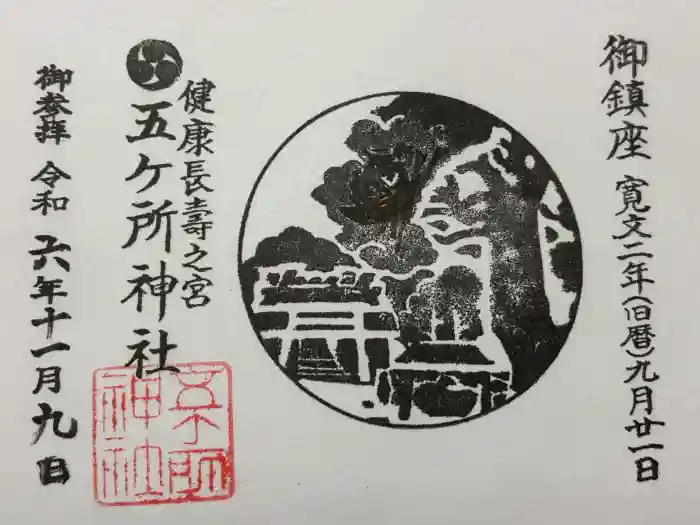 御鎮座 寛文二年(旧暦)九月廿一日
健康長壽之宮
五ケ所神社
御参拝 令和六年十一月九日
五ケ所
神社